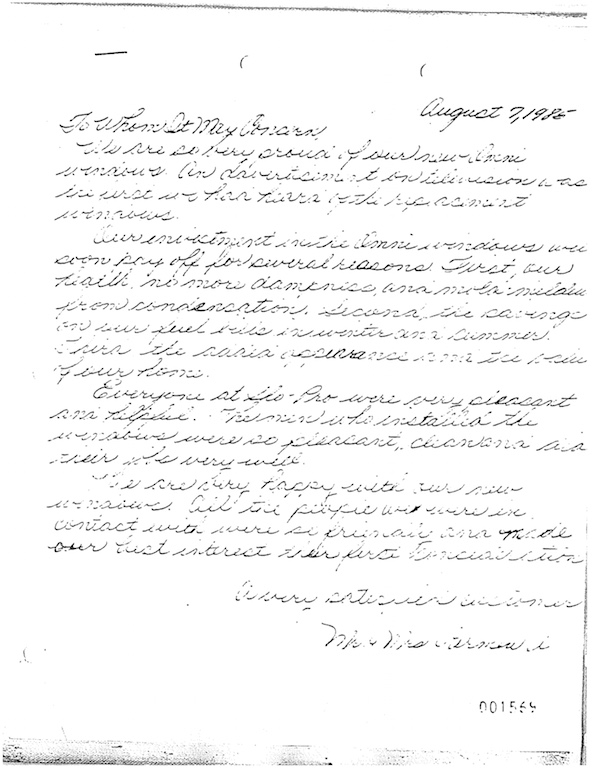 August 7, 1985
To Whom It May Concern,
We are so very proud of our new Omni
windows. An advertisement on television was
the first we had heard of the replacement
windows.
Our investment in the Omni windows will
soon pay off for several reasons. First, our
health, no more dampness, and mold mildew
from condensation. Second, the savings
on our fuel bills in winter and summer.
Third the added appearance and the value
of our home.
Everyone at -Pro were very pleasant
and helpful. The men who installed the
windows were so pleasant, clean and did
their jobs very well.
We are very happy with our new
windows. All the people we were in
contact with were so friendly and made
our best interest their first consideration
A very satisfied customer
Mr & Mrs
001569